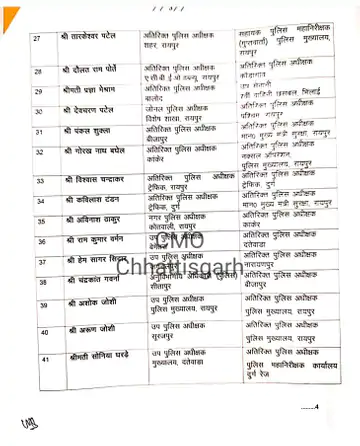 27 श्री तारकेश्वर पटेल अतिरिक्त पुलिस अधीक्षक सहायक पुलिस महानिरीक्षक
शहर, रायपुर (गुप्तवार्ता) पुलिस मुख्यालय,
रायपुर
28 श्री दौलत राम पोर्ते अतिरिक्त पुलिस अधीक्षक अतिरिक्त पुलिस अधीक्षक
रायपुर कोंडागांव
29 श्रीमती प्रज्ञा मेश्राम अतिरिक्त पुलिस अधीक्षक उप सेनानी
बालोद 7वीं वाहिनी छसबल भिलाई
30 श्री देवचरण पटेल जोनल पुलिस अधीक्षक अतिरिक्त पुलिस अधीक्षक
विशेष शाखा, रायपुर पश्चिम रायपुर
31 श्री पंकज शुक्ला अतिरिक्त पुलिस अधीक्षक अतिरिक्त पुलिस अधीक्षक
बीजापुर मान0 मुख्य मंत्री सुरक्षा, रायपुर
32 श्री गोरख नाथ बघेल अतिरिक्त पुलिस अधीक्षक अतिरिक्त पुलिस अधीक्षक
कांकेर नक्सल ऑपरेशन,
पुलिस मुख्यालय, रायपुर
33 श्री विश्वास चन्द्राकर अतिरिक्त पुलिस अधीक्षक अतिरिक्त पुलिस अधीक्षक
ट्रैफिक, रायपुर ट्रैफिक, दुर्ग
34 श्री कविलाश टंडन अतिरिक्त पुलिस अधीक्षक अतिरिक्त पुलिस अधीक्षक
ट्रैफिक, दुर्ग मान0 मुख्य मंत्री सुरक्षा, रायपुर
35 श्री अविनाश ठाकुर नगर पुलिस अधीक्षक अतिरिक्त पुलिस अधीक्षक
कोतवाली, रायपुर कांकेर
36 श्री राम कुमार बर्मन उप पुलिस अधीक्षक अतिरिक्त पुलिस अधीक्षक
दंतेवाड़ा
CMO
37 श्री हेम सागर सिदार उप पुलिस अधीक्षक अतिरिक्त पुलिस अधीक्षक
नारायणपुर
Chhattisgarh
38 श्री चंद्रकांत गवर्ना अनुविभागीय अधिकारी (पुलिस) अतिरिक्त पुलिस अधीक्षक
सीतापुर बीजापुर
39 श्री अशोक जोशी उप पुलिस अधीक्षक अतिरिक्त पुलिस अधीक्षक
पुलिस मुख्यालय, रायपुर पुलिस मुख्यालय, रायपुर
40 श्री अरूण जोशी उप पुलिस अधीक्षक अतिरिक्त पुलिस अधीक्षक
सूरजपुर पुलिस मुख्यालय, रायपुर
41 श्रीमती सोनिया घरड़े उप पुलिस अधीक्षक अतिरिक्त पुलिस अधीक्षक
मुख्यालय, दंतेवाड़ा पुलिस महानिरीक्षक कार्यालय
दुर्ग रेंज
........4